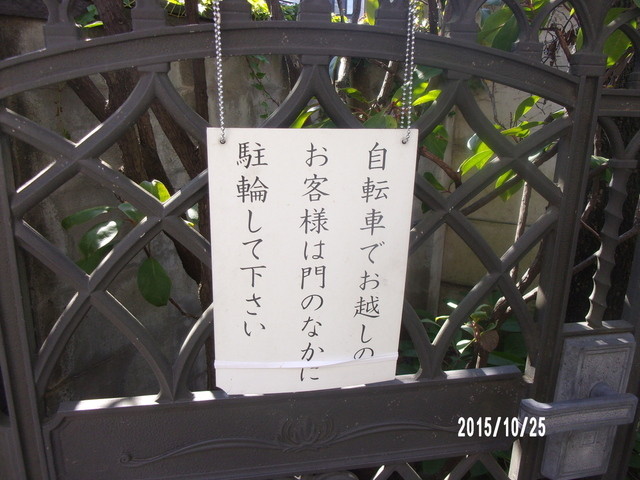 自転車でお越しの
お客様は門のなかに
駐輪して下さい
2015/10/25